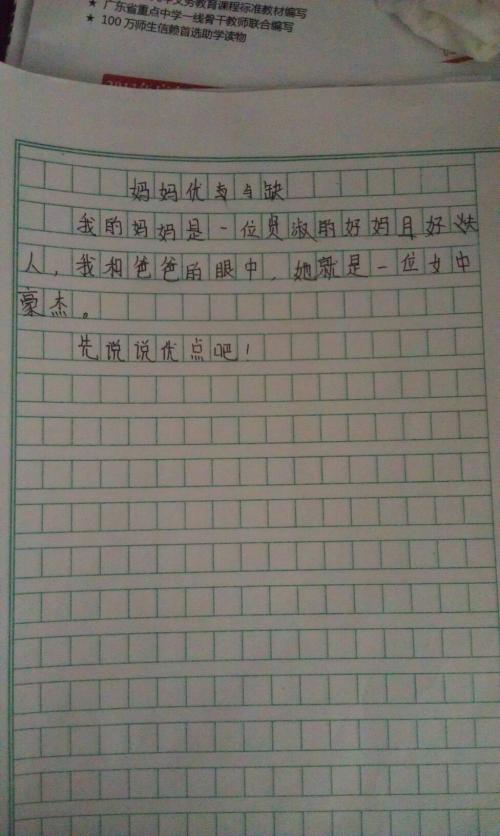 义务教育课程标准教材编写
★ 广东省重点中学一线骨干教师联合编写
★ 100 万师生信赖首选助学读物
妈妈优与与缺
我的妈妈是一位贤淑的好妈且好
人，我和爸爸的眼中，她就是一位女中
豪杰。
先说说优点吧！